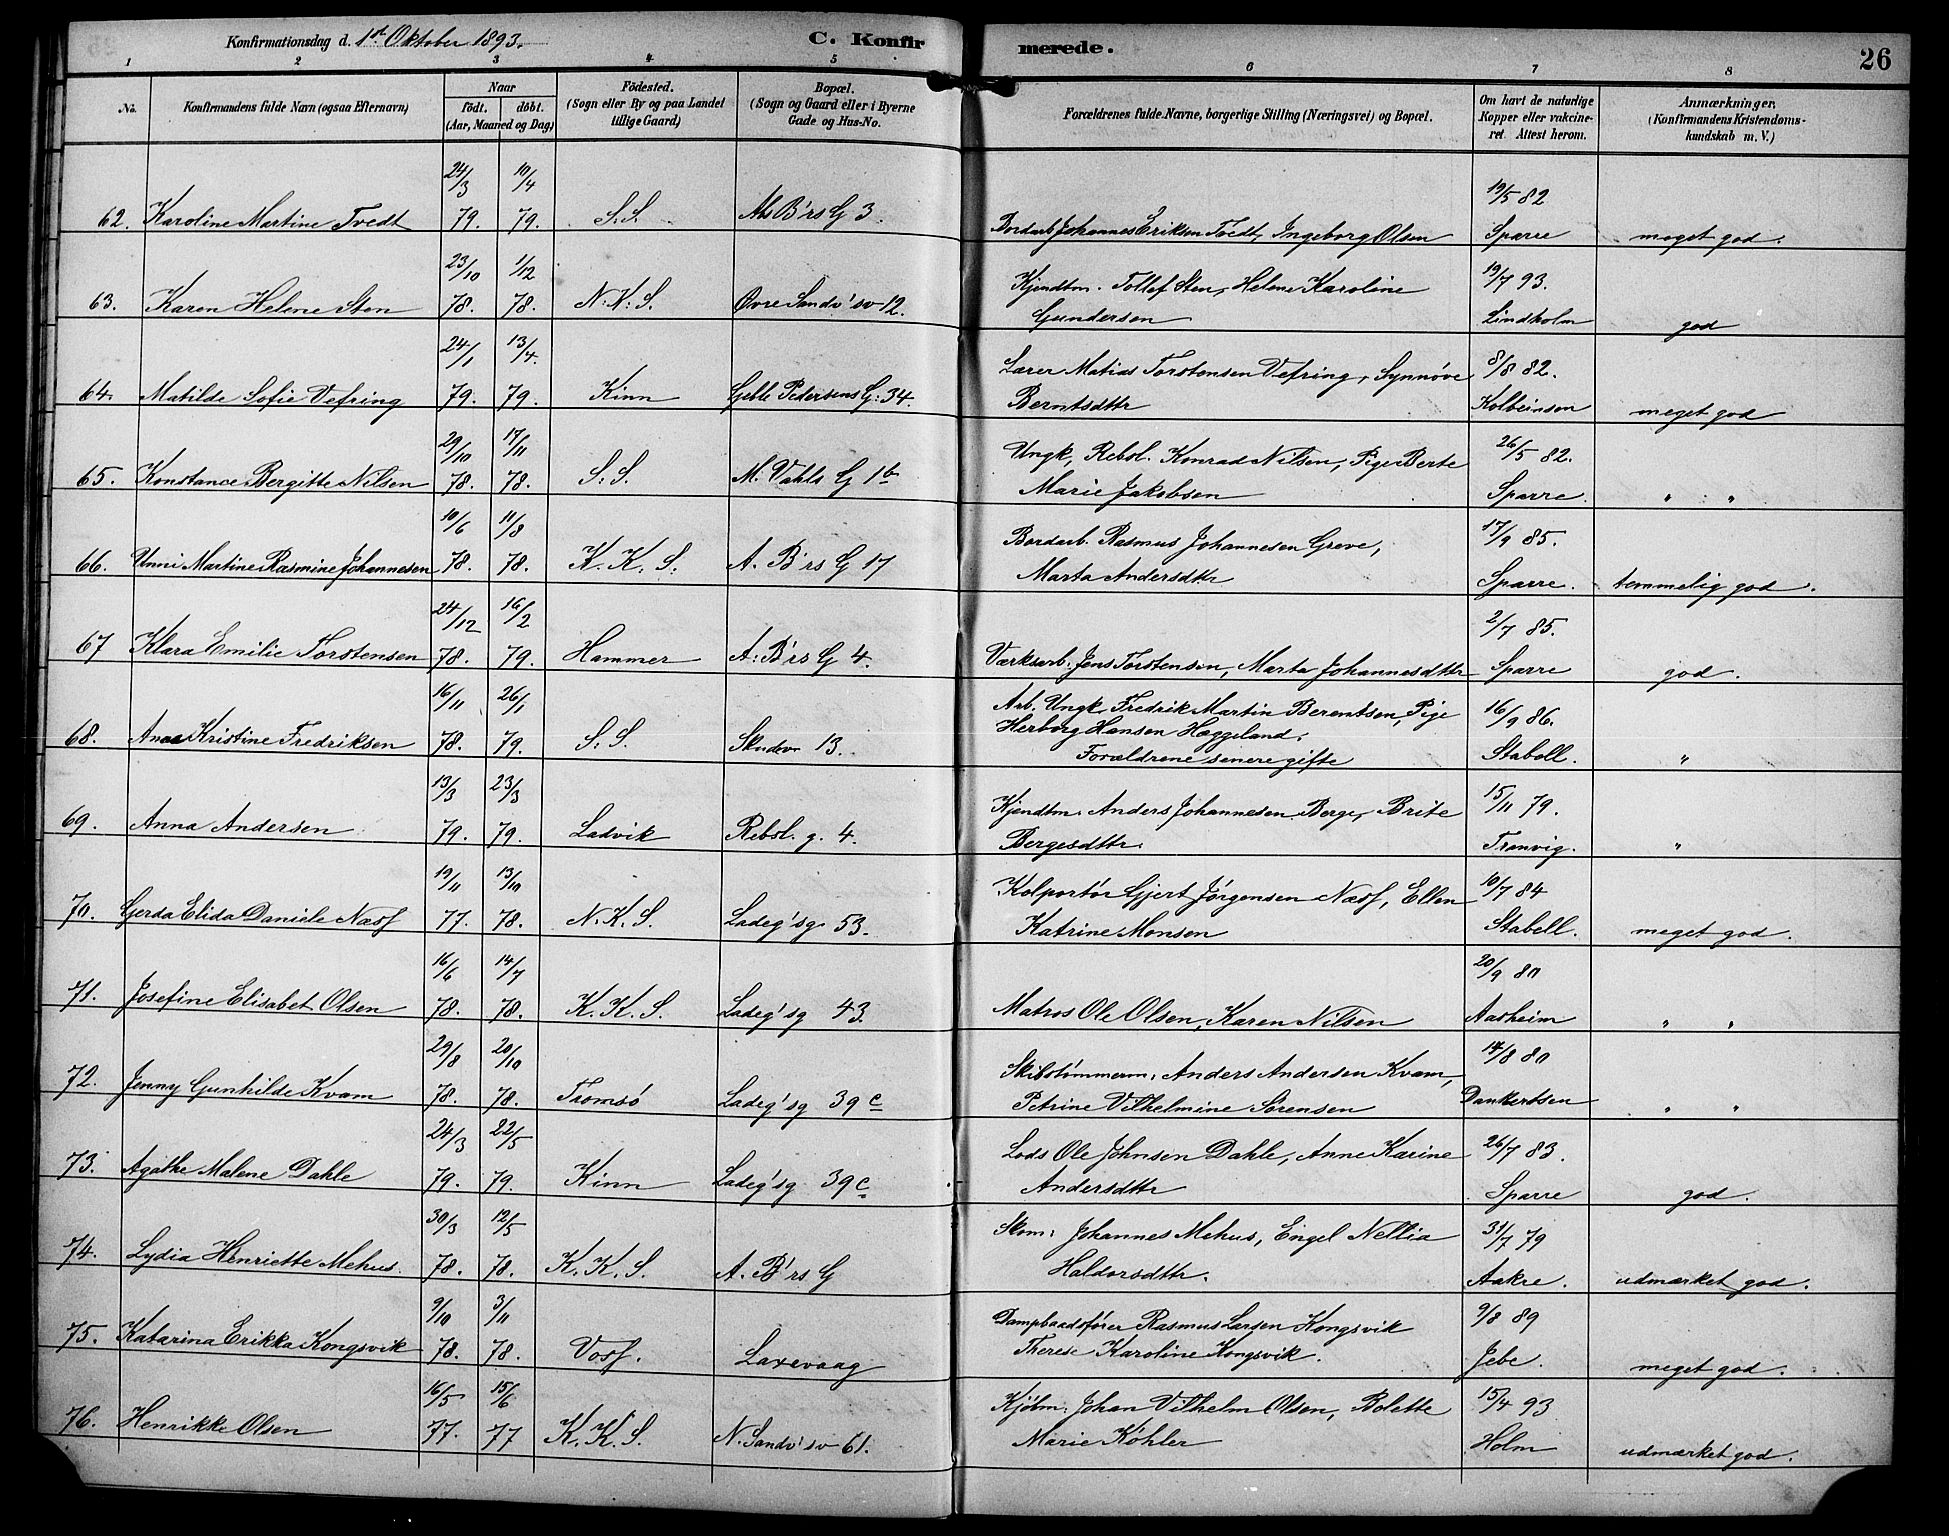 Konfirmationsdag d. 1st Oktober 1893. C. Konfirmerede. 26
1 2 3 4 5 6 7 8
No. Konfirmandens fulde Navn (ogsaa Efternavn) Naar födt. döbt. (Aar, Maaned og Dag) Födested. (Sogn eller By og paa Landet tillige Gaard) Bopæl. (Sogn og Gaard eller i Byerne Gade og Hus-No. Forældrenes fulde Navne, borgerlige Stilling (Næringsvei) og Bopæl. Om havt de naturlige Kopper eller vakcineret. Attest herom. Anmærkninger. (Konfirmandens Kristendomskundskab m. V.)
24/3 10/4 19/5 82
62. Karoline Martine Tvedt 79. 79. S.S. A. B'rs G 3. Bordarb Johannes Eriksen Tvedt, Ingeborg Olsen Sparre meget god.
23/10 1/12 Kjendtm. Tollef Sten, Helene Karoline 19/7 93.
63. Karen Helene Sten 78. 78. N.K.S. Øvre Sandv'sv 12. Gundersen Lindholm god
24/1 13/4. Lærer Matias Torstensen Vefring, Synnøve 8/8 82.
64. Matilde Sofie Vefring 79. 79. Kinn Geble Pedersens G. 34. Berntsdttr Kolbeinsen meget god
29/10 17/11 Ungk, Rebsl. Konrad Nilsen, Pige Berte 26/5 82.
65. Konstance Bergitte Nilsen 78. 78. S.S. M. Vahls G 1b Marie Jakobsen Sparre. " "
10/6 11/8 Bordarb. Rasmus Johannesen Greve, 17/9 85.
66. Unni Martine Rasmine Johannesen 78. 78. K.K.S. A. B'rs G 17 Marta Andersdttr Sparre. temmelig god.
24/12 16/2 2/7 85.
67 Klara Emilie Torstensen 78. 79. Hammer A. B'rs G 4. Værksarb. Jens Torstensen, Marta Johannesdttr Sparre god.
16/11 26/1 Arb. Ungk. Fredrik Martin Berentsen, Pige 16/9 86.
Herborg Hansen Hæggeland.
68. Anna Kristine Fredriksen 78. 79. S.S. Skudev 13. Forældrene senere gifte Stabell. "
13/3 23/3 Kjendtm. Anders Johannesen Berge, Brite 15/11 79.
69. Anna Andersen 79. 79. Ladvik Rebsl. g. 4. Bergesdttr. Tranvig. "
19/11 13/10 Kolportør Gjert Jørgensen Næss, Ellen 10/7 84
70. Gerda Elida Daniele Næss 77. 78. N.K.S. Ladeg'sg 53. Katrine Monsen Stabell. meget god.
16/6 14/7 20/9 80
71. Josefine Elisabet Olsen 78. 78. K.K.S. Ladeg'sg 43. Matros Ole Olsen, Karen Nilsen Aarheim " "
29/8 20/10 Skibstømmerm. Anders Andersen Kvam, 14/8 80
72. Jenny Gunhilde Kvam 78. 78. Tromsö Ladeg'sg 39c Petrine Vilhelmine Sørensen Dankertsen " "
24/3 22/5 Lods Ole Johnsen Dahle, Anne Karine 26/7 83.
73. Agathe Malene Dahle 79. 79. Kinn Ladeg'sg 39c Andersdttr Sparre god.
30/3 12/5 Skom. Johannes Mehus, Engel Nellia 31/7 79
74. Lydia Henriette Mehus. 78. 78. K.K.S. A. B'rs G Haldorsdttr. Aakre. udmærket god.
9/10 3/11 Dampbaadsfører Rasmus Larsen Kongsvik 9/8 89
75. Katarina Erikka Kongsvik 78. 78. Voss. Laxevaag Therese Karoline Kongsvik. Jebe. meget god.
16/5 15/6 Kjøbm. Johan Vilhelm Olsen, Bolette 15/4 93
76. Henrikke Olsen 77. 77 K.K.S. N. Sandv'sv 61. Marie Køhler Holm udmærket god.